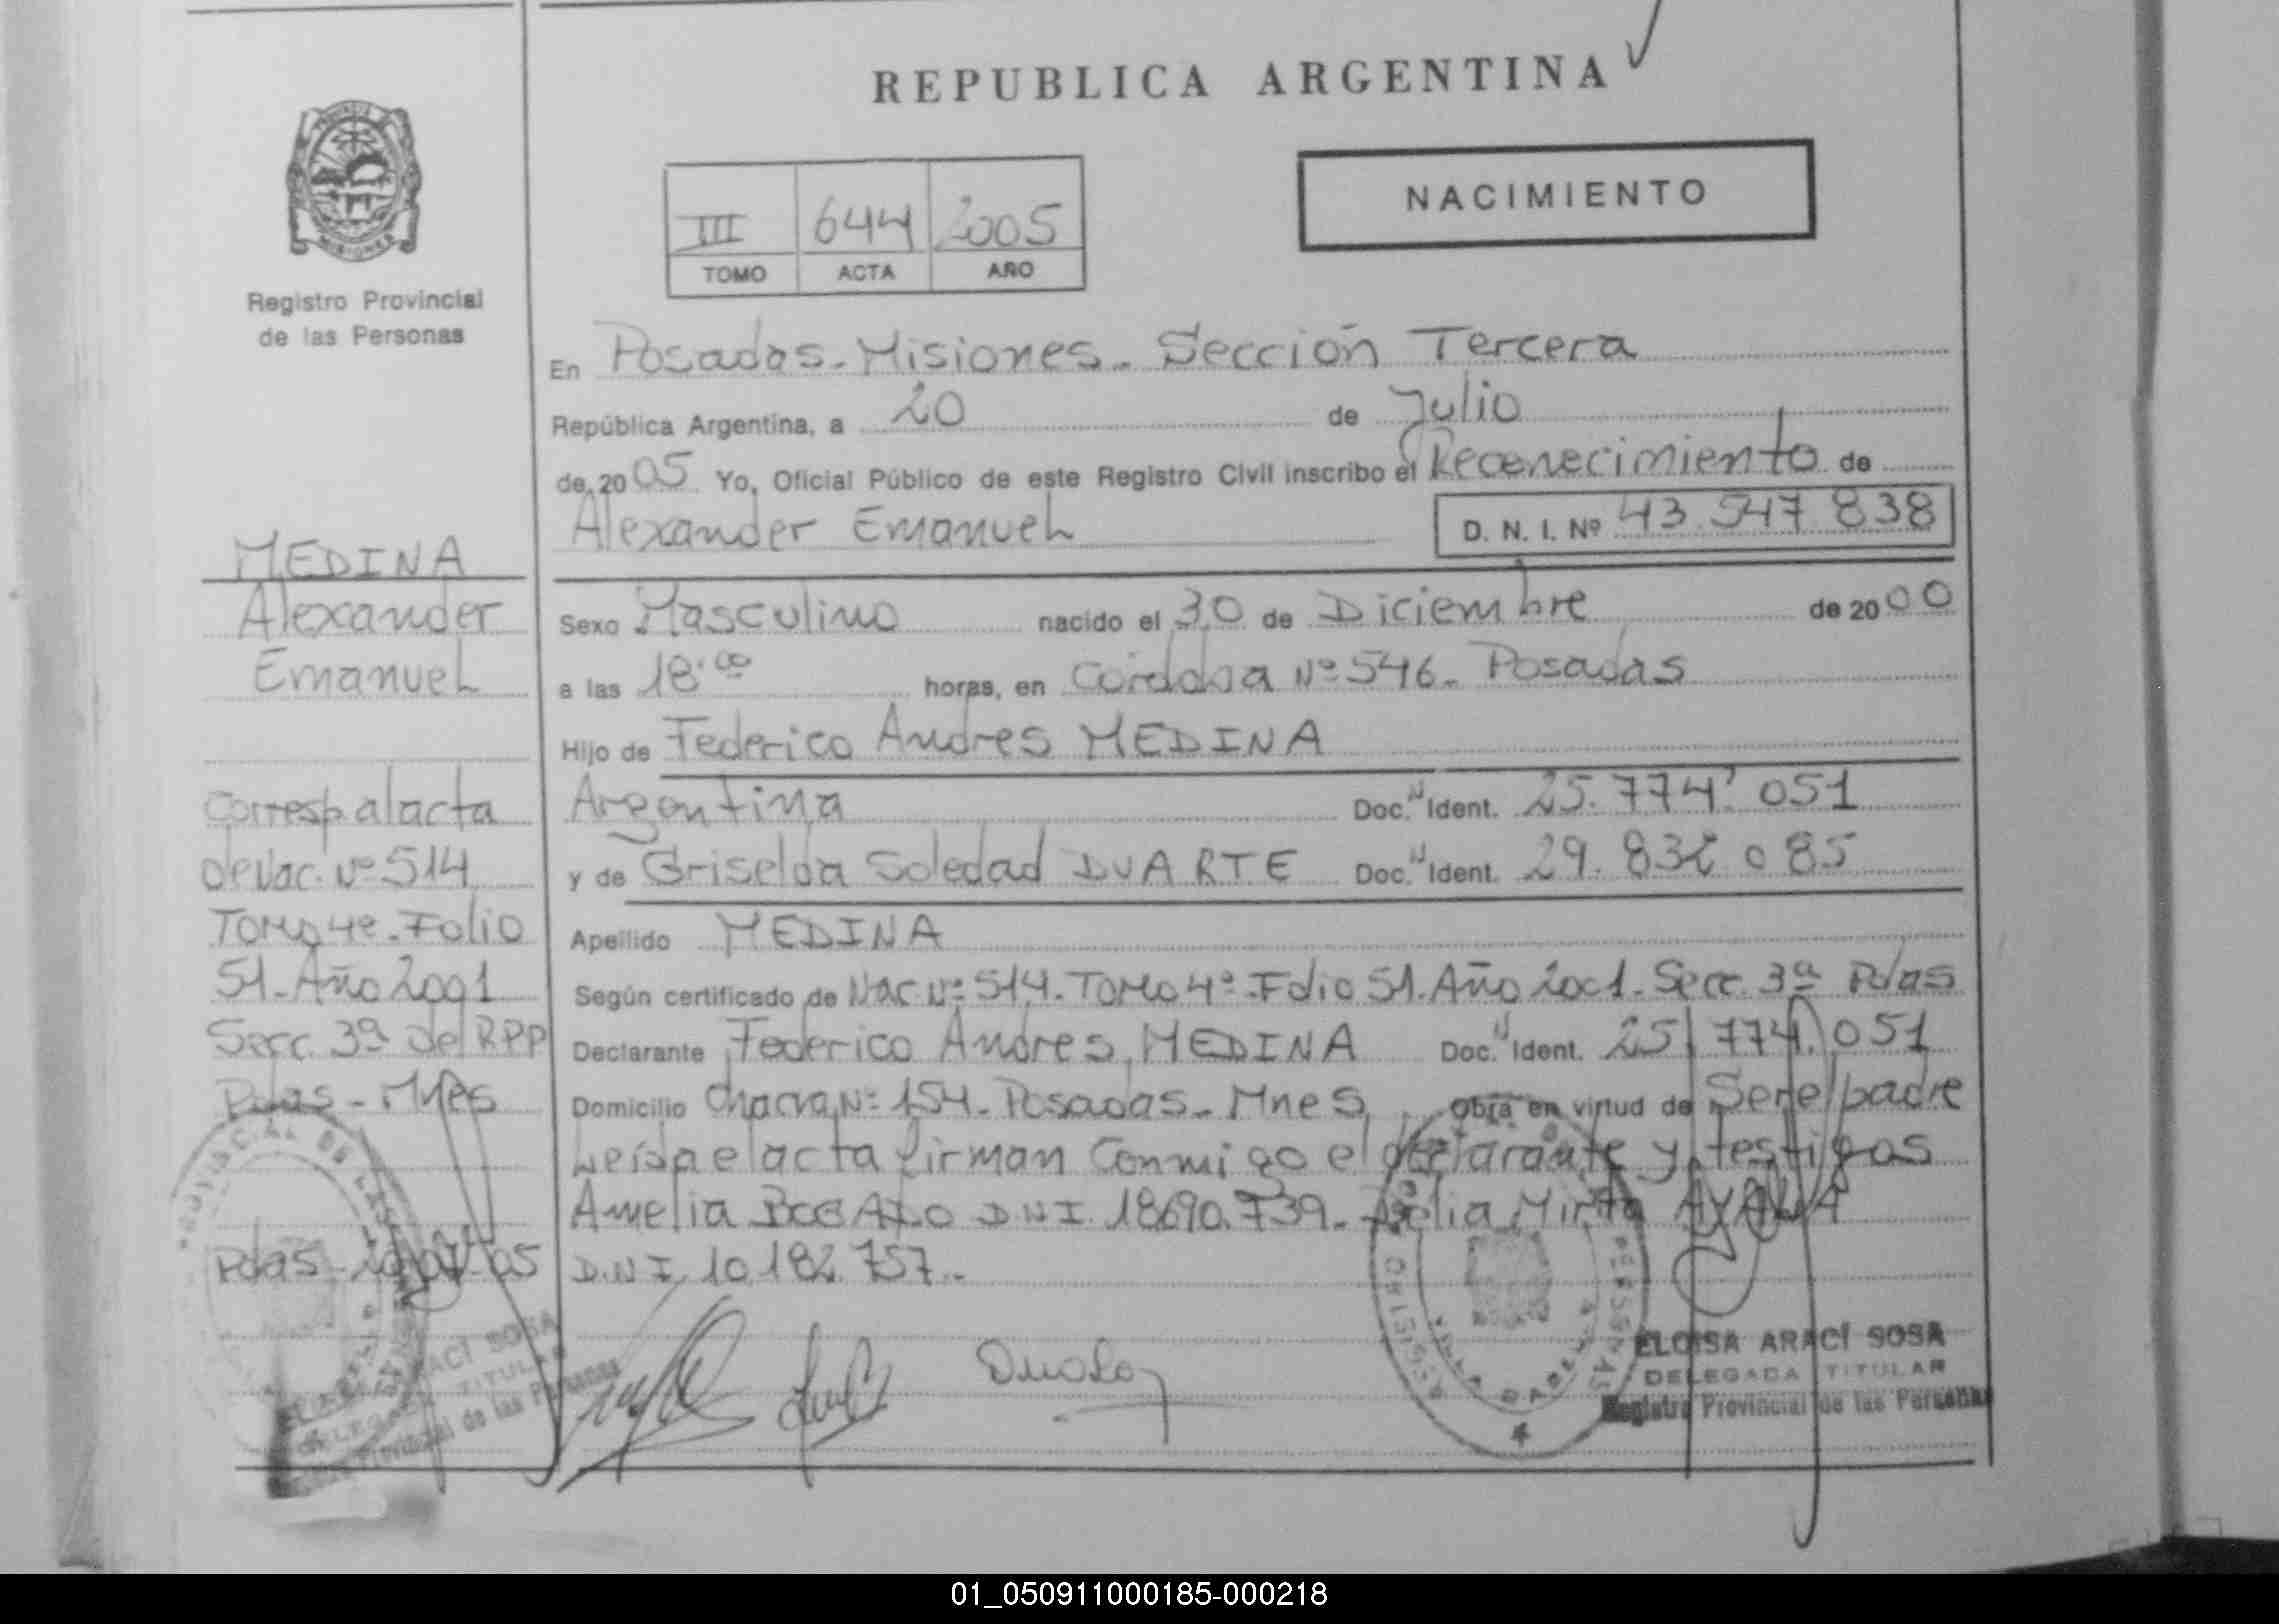 REPUBLICA ARGENTINA
NACIMIENTO
III 644 2005
TOMO ACTA AÑO
Registro Provincial
de las Personas
MEDINA
Alexander
Emanuel
Corresp. al acta
de Nac. Nº 514
Tomo 4º - Folio
51 - Año 2001
Secc. 3ª del RPP
Pdas - Mnes
Pdas 05
En Posadas - Misiones - Sección Tercera
República Argentina, a 20 de Julio
de 2005 Yo, Oficial Público de este Registro Civil inscribo el Reconocimiento de
Alexander Emanuel D. N. I. Nº 43.547.838
Sexo Masculino nacido el 30 de Diciembre de 2000
a las 18:00 horas, en Córdoba Nº 546 - Posadas
Hijo de Federico Andres MEDINA
Argentina Doc. N Ident. 25.774.051
y de Griselda Soledad DUARTE Doc. N Ident. 29. 085
Apellido MEDINA
Según certificado de Nac. Nº 514 - Tomo 4º - Folio 51. Año 2001 - Secc. 3ª Pdas
Declarante Federico Andres MEDINA Doc. N Ident. 25.774.051
Domicilio Chacra Nº 154 - Posadas - Mnes Obra en virtud de Ser el padre
Leída el acta firman Conmigo el declarante y testigos
Amelia D.N.I. 18.690.739 - Mirta AYALA
D.N.I. 10.182.757.-
ELOISA ARACÍ SOSA
DELEGADA TITULAR
Registro Provincial de las Personas
01_050911000185-000218